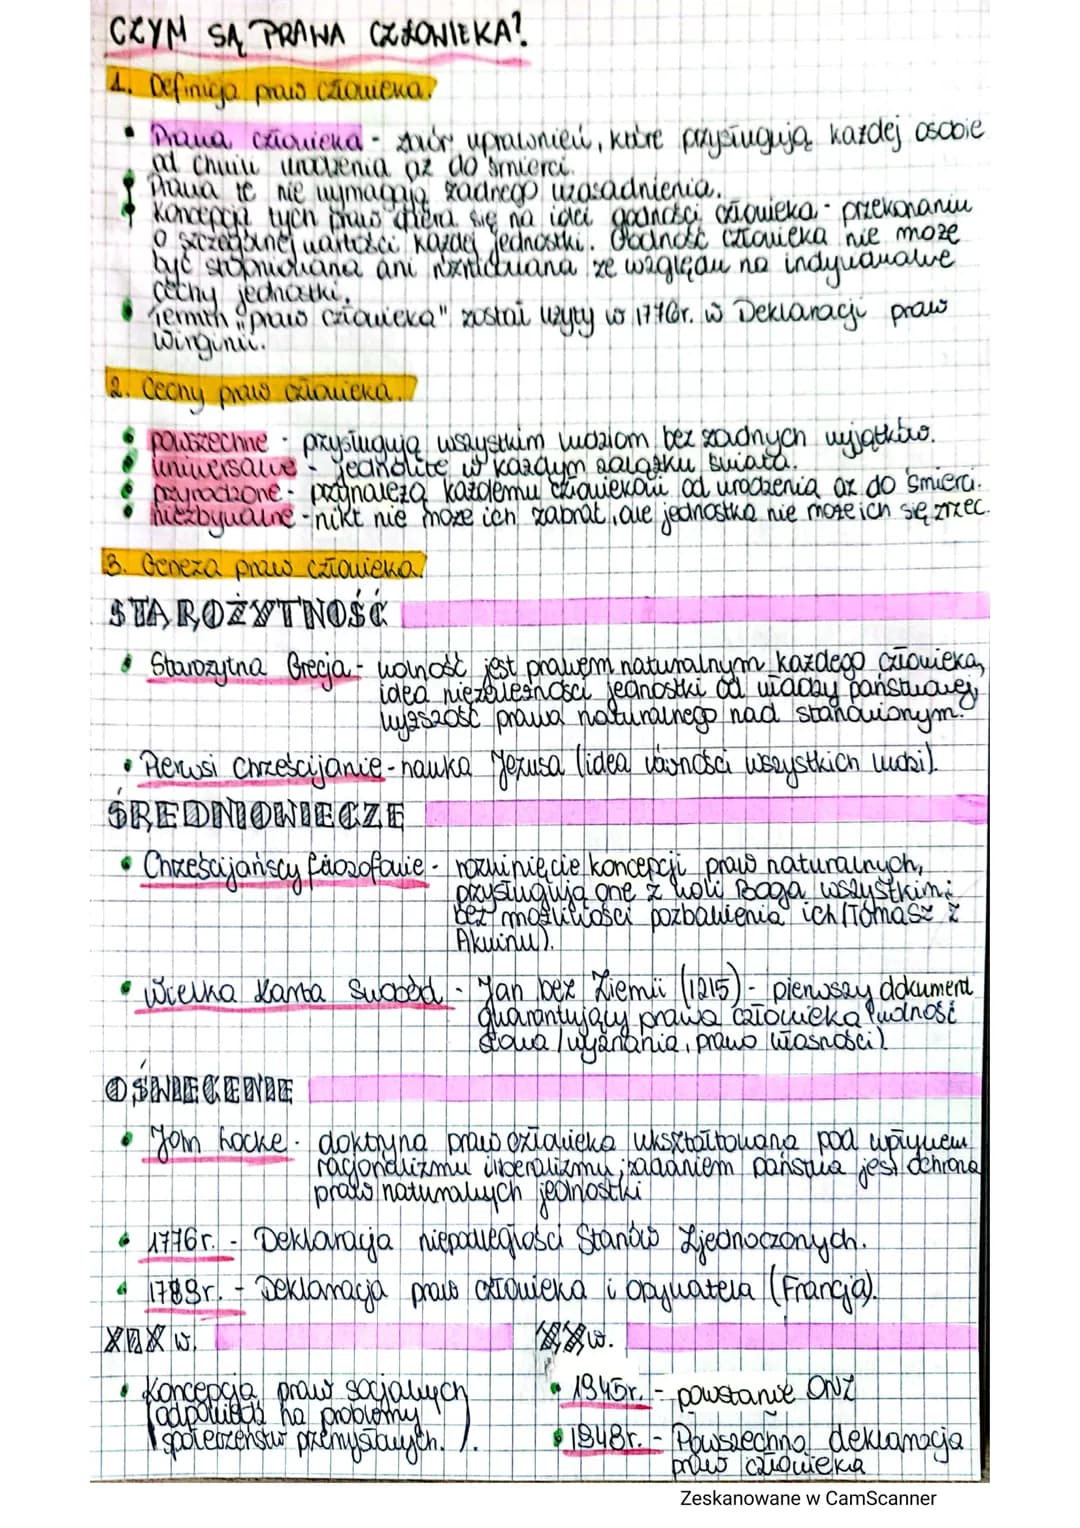 CZYM SĄ PRAWA CZŁOWIEKA?
1. Definicja praw człowieka.
• Prawa człowieka - zbiór uprawnień, które przysługują każdej osobie
od chwili urodzenia aż do śmierci.
• Prawa te nie wymagają żadnego uzasadnienia.
• Koncepcja tych praw opiera się na idei godności człowieka - przekonaniu
o szczególnej wartości każdej jednostki. Godność człowieka nie może
być stopniowana ani różnicowana ze względu na indywidualne
cechy jednostki.
• Termin "praw człowieka" został użyty w 1776r. w Deklaracji praw
Wirginii.
2. Cechy praw człowieka.
• powszechne - przysługują wszystkim ludziom bez żadnych wyjątków.
• uniwersalne - jednolite w każdym zakątku świata.
• przyrodzone - przynależą każdemu człowiekowi od urodzenia aż do śmierci.
• niezbywalne - nikt nie może ich zabrać, ale jednostka nie może ich się zrzec.
3. Geneza praw człowieka.
STAROŻYTNOŚĆ
• Starożytna Grecja - wolność jest prawem naturalnym każdego człowieka,
idea niezależności jednostki od władzy państwowej,
wyższość prawa naturalnego nad stanowionym.
• Pierwsi chrześcijanie - nauka Jezusa (idea równości wszystkich ludzi).
ŚREDNIOWIECZE
• Chrześcijańscy filozofowie - rozwinięcie koncepcji praw naturalnych,
przysługują one z woli Boga wszystkim;
bez możliwości pozbawienia ich (Tomasz z
Akwinu).
• Wielka Karta Swobód - Jan bez Ziemii (1215) - pierwszy dokument
gwarantujący prawa człowieka (wolność
słowa / wyznania, prawo własności)
OŚWIECENIE
• John Locke - doktryna praw człowieka ukształtowana pod wpływem
racjonalizmu i liberalizmu; zadaniem państwa jest ochrona
praw naturalnych jednostki
• 1776r. - Deklaracja niepodległości Stanów Zjednoczonych.
• 1789r. - Deklaracja praw człowieka i obywatela (Francja).
XIX w.
• Koncepcja praw socjalnych
(odpowiedź na problemy
społeczeństw przemysłowych.).
XX w.
• 1945r. - powstanie ONZ
• 1948r. - Powszechna deklaracja
praw człowieka
Zeskanowane w CamScanner